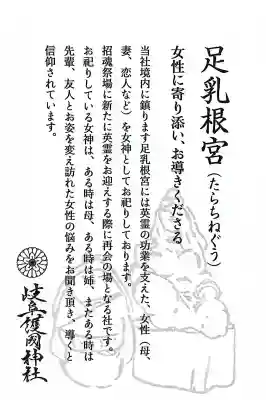 足乳根宮（たらちねぐう）
女性に寄り添い、お導きくださる
当社境内に鎮ります足乳根宮には英霊の功業を支えた、女性（母、
妻、恋人など）を女神としてお祀りしております。
招魂祭場に新たに英霊をお迎えする際に再会の場となる社です。
お祀りしている女神は、ある時は母、ある時は姉、またある時は
先輩、友人とお姿を変え訪れた女性の悩みをお聞き頂き、導くと
信仰されています。
岐阜護國神社